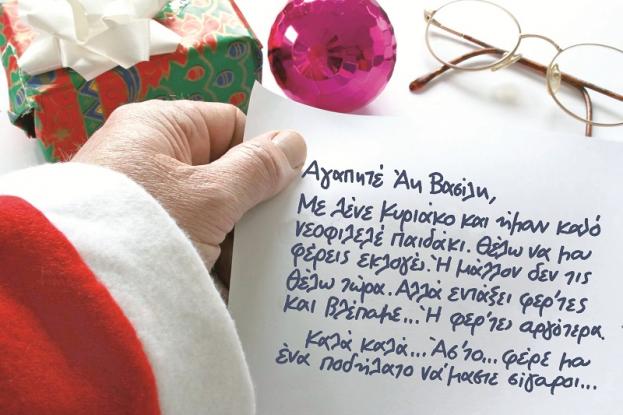 Αγαπητέ Άη Βασίλη,
Με λένε Κυριάκο και ήμουν καλό
νεοφιλελέ παιδάκι. Θέλω να μου
φέρεις εκλογές. Ή μάλλον δεν τις
θέλω τώρα. Αλλά εντάξει φερ'τες
και βλέπουμε... Ή φερ'τες αργότερα.
Καλά καλά... Άσ'το... φέρε μου
ένα ποδήλατο να'μαστε σίγουροι...